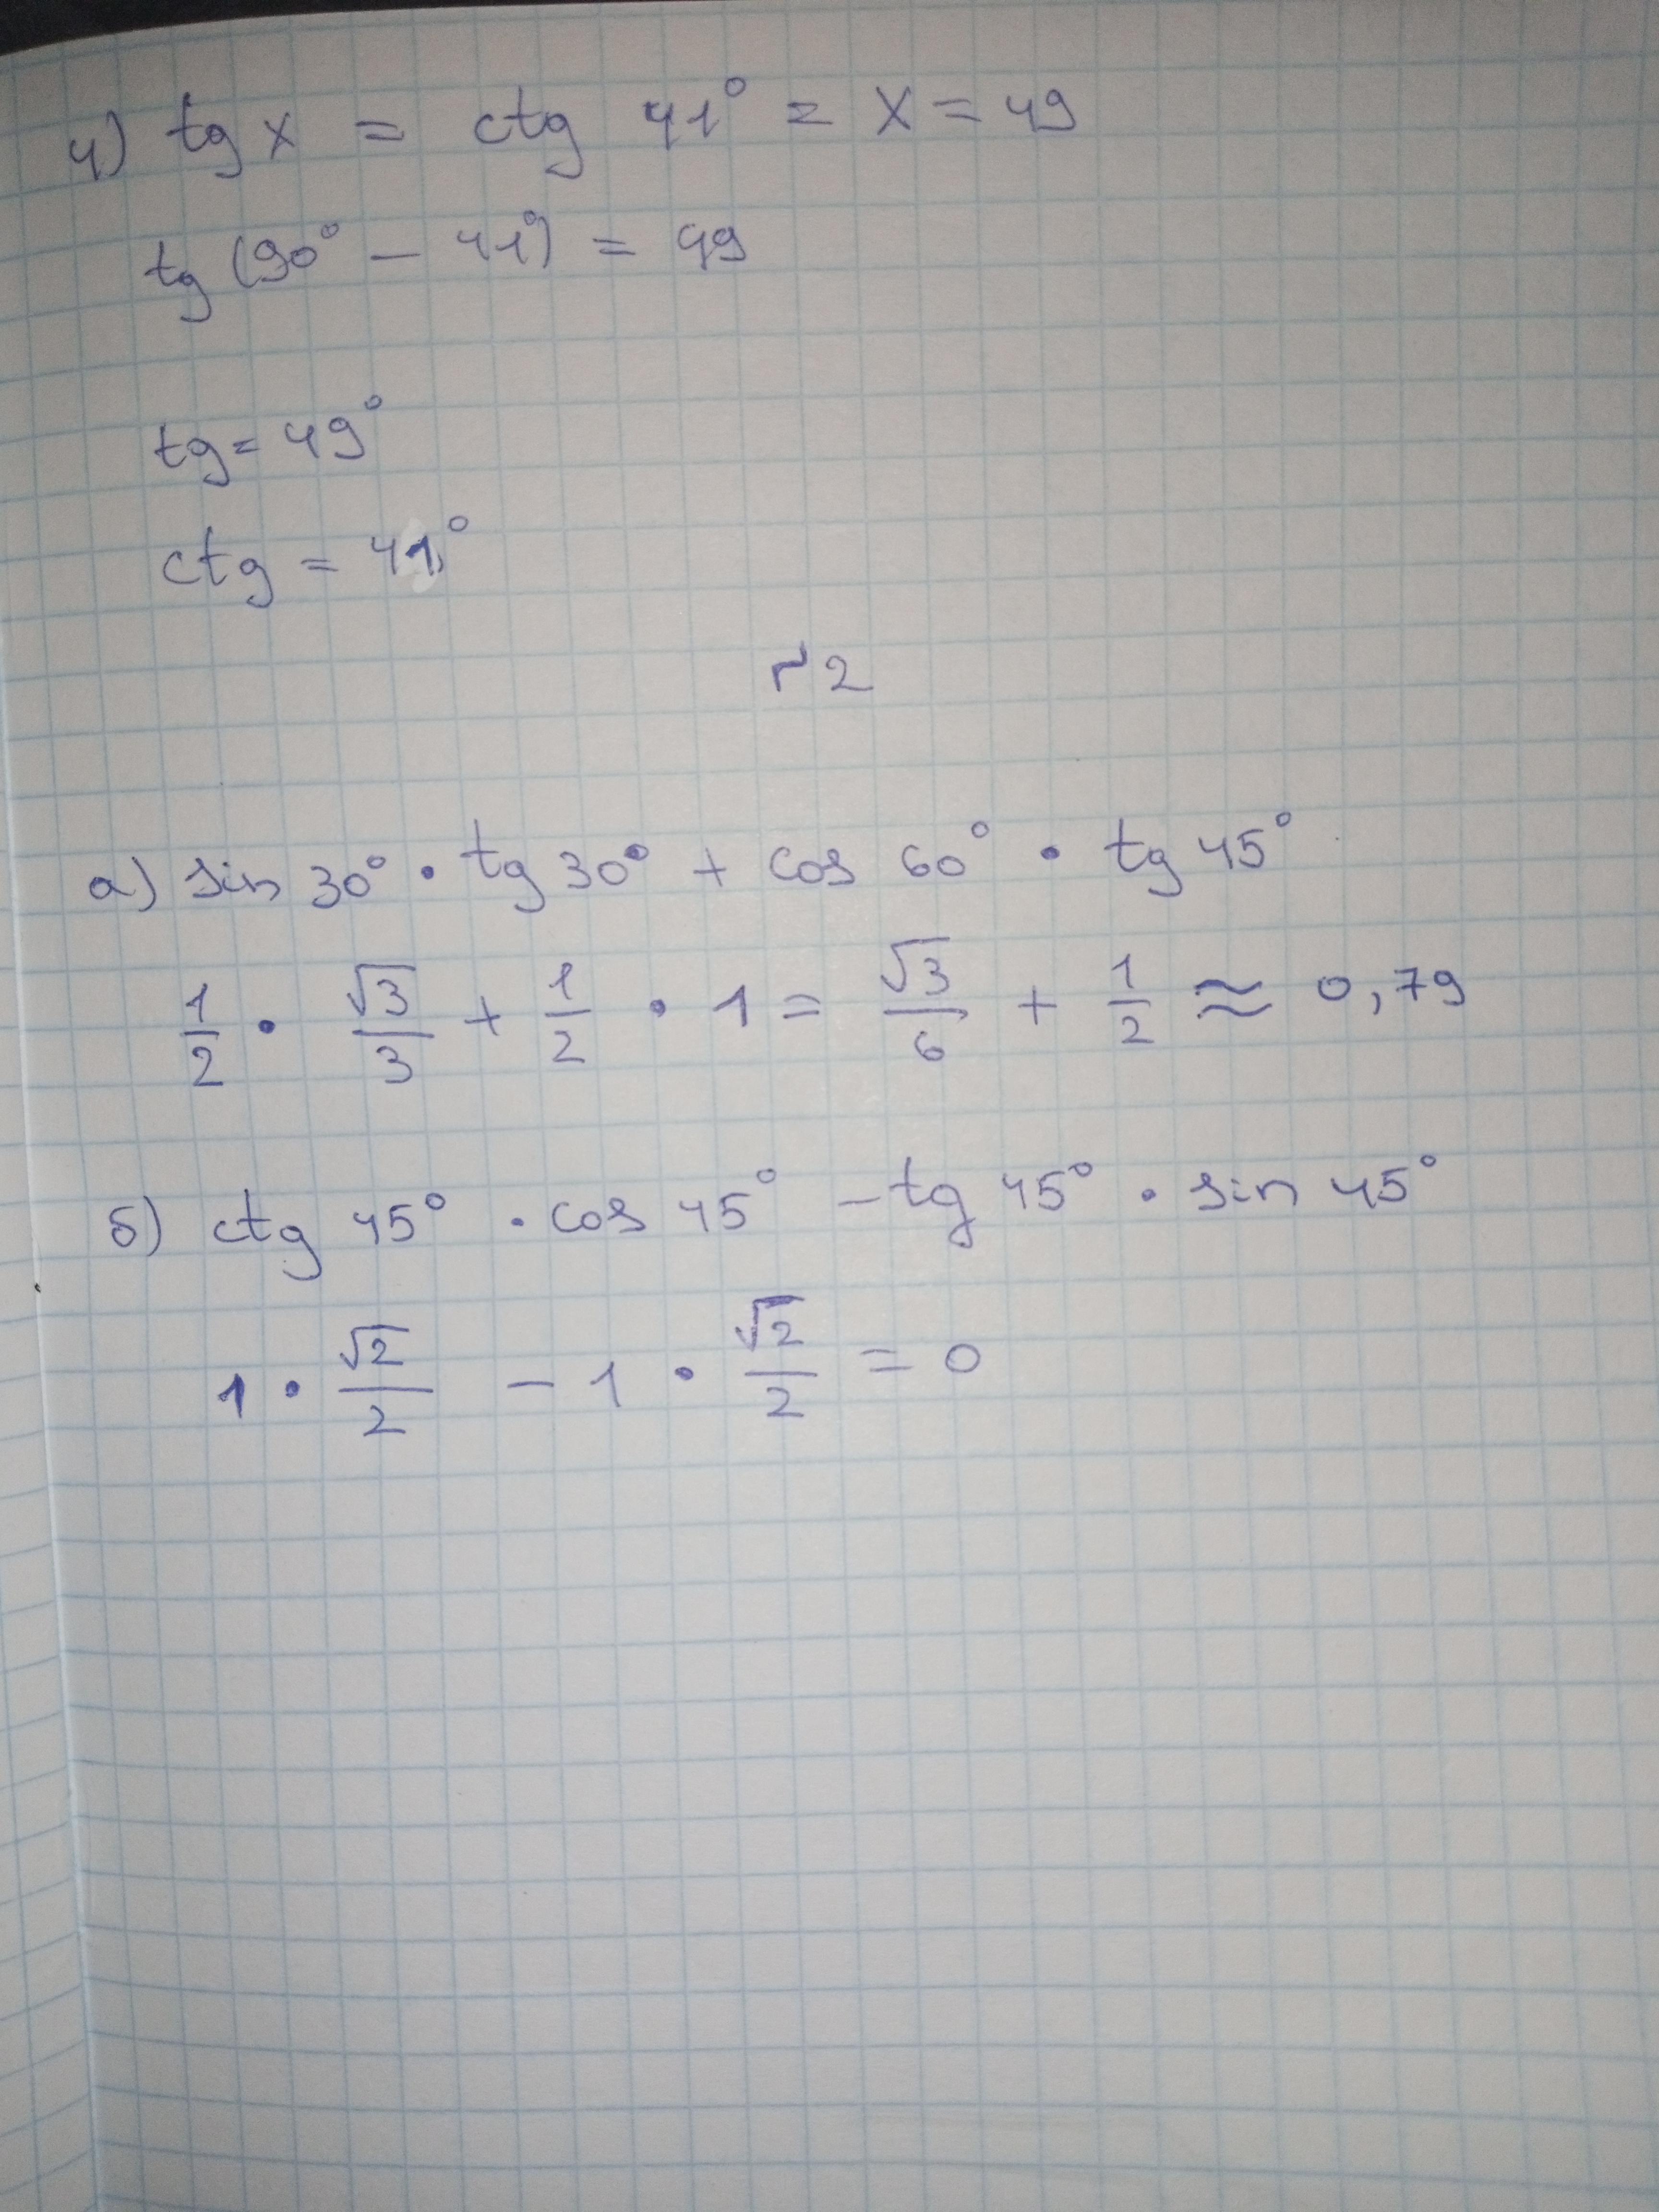 4) tg x = ctg 41° = x = 49
tg (90° - 41°) = 49
tg = 49°
ctg = 41°
№2
а) sin 30° • tg 30° + cos 60° • tg 45°
1/2 • √3/3 + 1/2 • 1 = √3/6 + 1/2 ≈ 0,79
б) ctg 45° • cos 45° - tg 45° • sin 45°
1 • √2/2 - 1 • √2/2 = 0